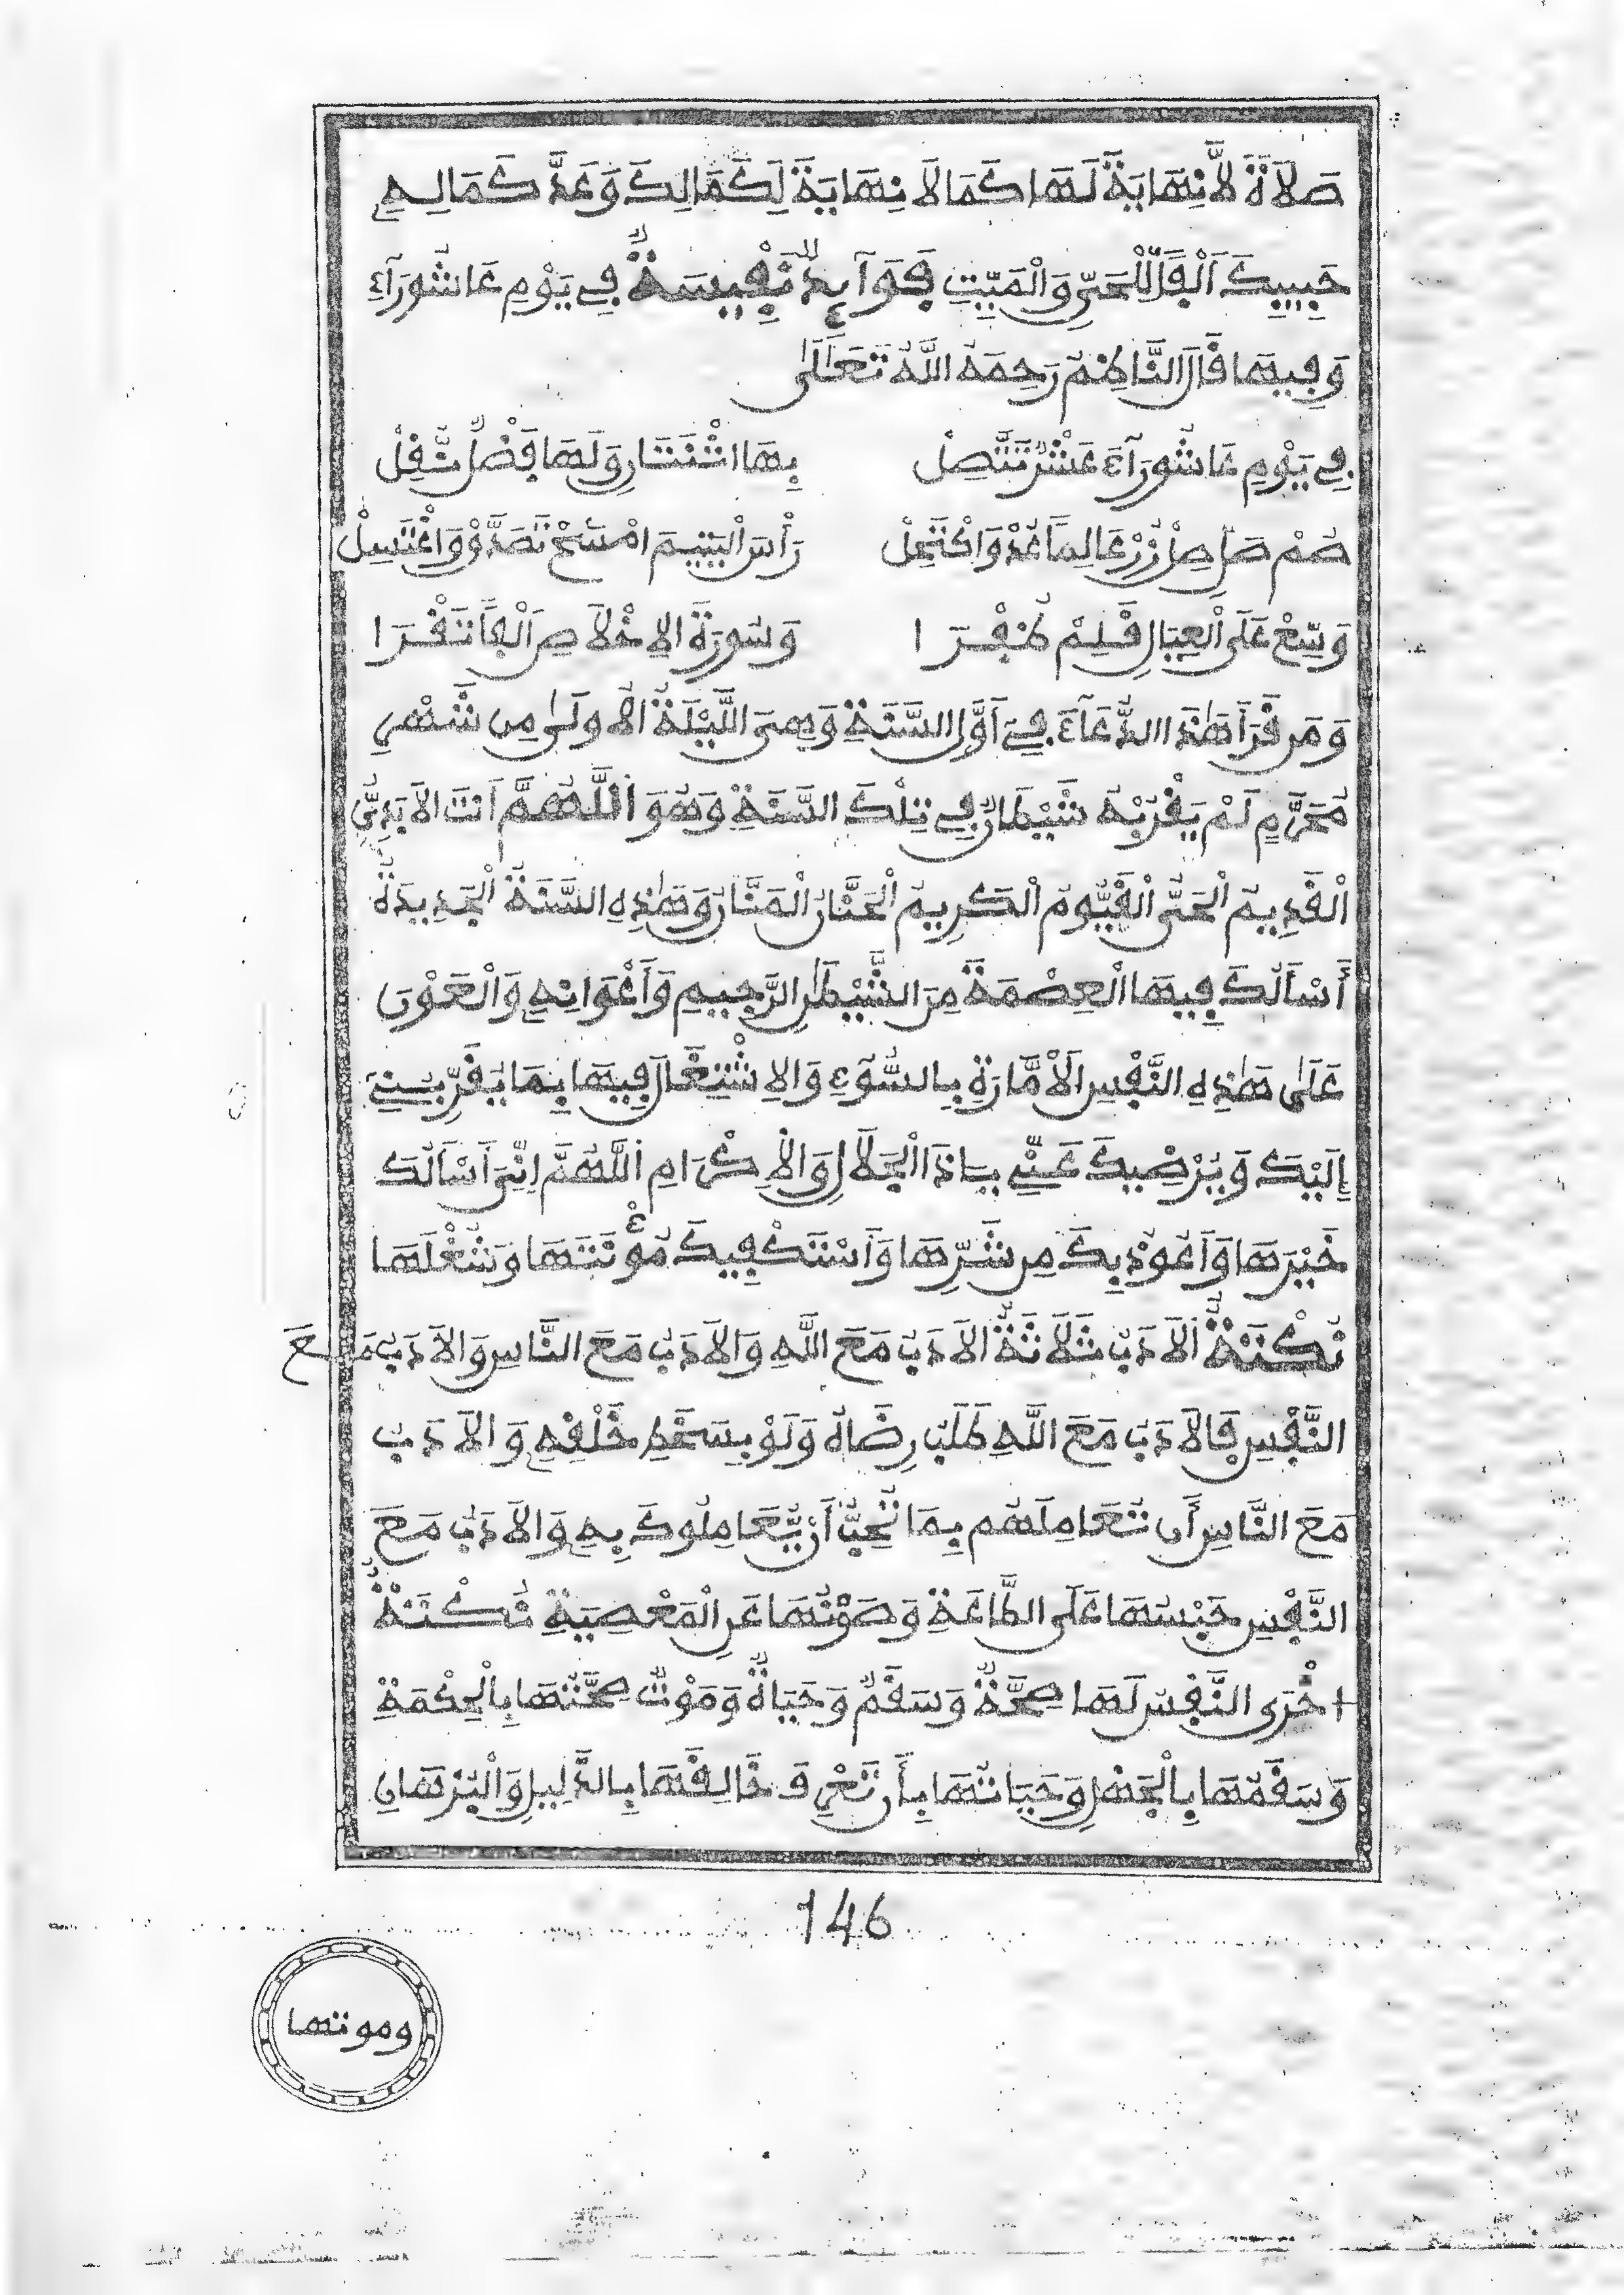 صَلَاةً لَّا نِهَايَةَ لَهَا كَمَا لَا نِهَايَةَ لِكَمَالِكَ وَعَدَّ كَمَالِهِ
حَبِيبِكَ أَلْفًا لِّلْحَيِّ وَالْمَيِّتِ فَوَآئِدُ نَفِيسَةٌ فِي يَوْمِ عَاشُورَآءَ
وَفِيهَا قَالَ النَّاظِمُ رَحِمَهُ اللَّهُ تَعَالَىٰ
فِي يَوْمِ عَاشُورَآءَ عَشْرٌ تَتَّصِلْ بِهَا اثْنَتَانِ وَلَهَا فَضْلٌ نُّقِلْ
صُمْ صَلِّ صِلْ زُرْ عَالِمًا عُدْ وَاكْتَحِلْ رَأْسَ الْيَتِيمِ امْسَحْ تَصَدَّقْ وَاغْتَسِلْ
وَسِّعْ عَلَى الْعِيَالِ قَلِّمْ ظُفْرَا وَسُورَةَ الِاخْلَاصِ أَلْفًا تَقْرَا
وَمَن قَرَأَ هَٰذَا الدُّعَآءَ فِي أَوَّلِ السَّنَةِ وَهِيَ اللَّيْلَةُ الْأُولَىٰ مِن شَهْرِ
مُحَرَّمٍ لَمْ يَقْرُبْهُ شَيْطَانٌ فِي تِلْكَ السَّنَةِ وَهُوَ اللَّهُمَّ أَنتَ الْأَبَدِيُّ
الْقَدِيمُ الْحَيُّ الْقَيُّومُ الْكَرِيمُ الْحَنَّانُ الْمَنَّانُ وَهَٰذِهِ السَّنَةُ الْجَدِيدَةُ
أَسْأَلُكَ فِيهَا الْعِصْمَةَ مِنَ الشَّيْطَٰنِ الرَّجِيمِ وَأَعْوَانِهِ وَالْعَوْنَ
عَلَىٰ هَٰذِهِ النَّفْسِ الْأَمَّارَةِ بِالسُّوٓءِ وَالِاشْتِغَالَ فِيهَا بِمَا يُقَرِّبُنِي
إِلَيْكَ وَيُرْضِيكَ عَنِّي يَاذَا الْجَلَالِ وَالْإِكْرَامِ اللَّهُمَّ إِنِّي أَسْأَلُكَ
خَيْرَهَا وَأَعُوذُ بِكَ مِن شَرِّهَا وَأَسْتَكْفِيكَ مُؤْنَتَهَا وَشُغْلَهَا
نُكْتَةٌ الْأَدَبُ ثَلَاثَةٌ الْأَدَبُ مَعَ اللَّهِ وَالْأَدَبُ مَعَ النَّاسِ وَالْأَدَبُ مَعَ
النَّفْسِ فَالْأَدَبُ مَعَ اللَّهِ طَلَبُ رِضَاهُ وَلَوْ بِسَخَطِ خَلْقِهِ وَالْأَدَبُ
مَعَ النَّاسِ أَن تُعَامِلَهُم بِمَا تُحِبُّ أَنْ يُّعَامِلُوكَ بِهِ وَالْأَدَبُ مَعَ
النَّفْسِ حَبْسُهَا عَلَى الطَّاعَةِ وَصَوْنُهَا عَنِ الْمَعْصِيَةِ نُكْتَةٌ
اخْرَى النَّفْسُ لَهَا صِحَّةٌ وَسَقَمٌ وَحَيَاةٌ وَمَوْتٌ صِحَّتُهَا بِالْحِكْمَةِ
وَسَقَمُهَا بِالْجَهْلِ وَحَيَاتُهَا بِأَن تَعْرِفَ خَالِقَهَا بِالدَّلِيلِ وَالْبُرْهَانِ
146
وموتها